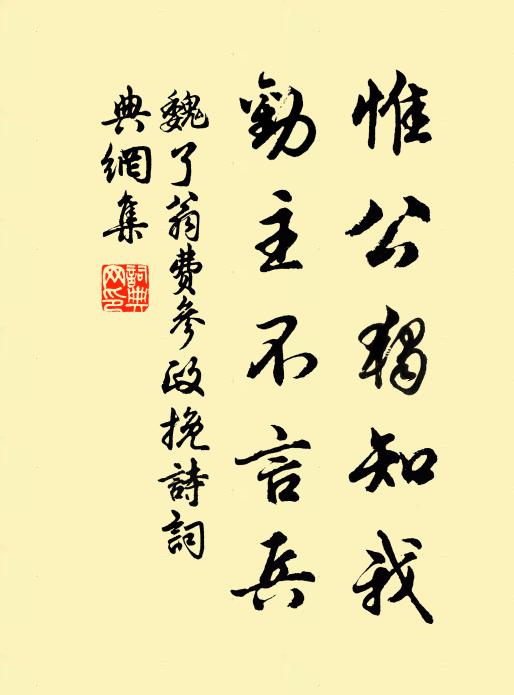 惟公獨知我
勸主不言兵
魏了翁費參政挽詩詞
典網集
詞典網印